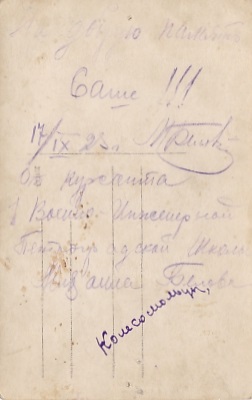 память
Саше !!!
17/IX 23.
От курсанта
1 Военно-Инженерной
Петроградской Школ
Белова
Комсомольцы,